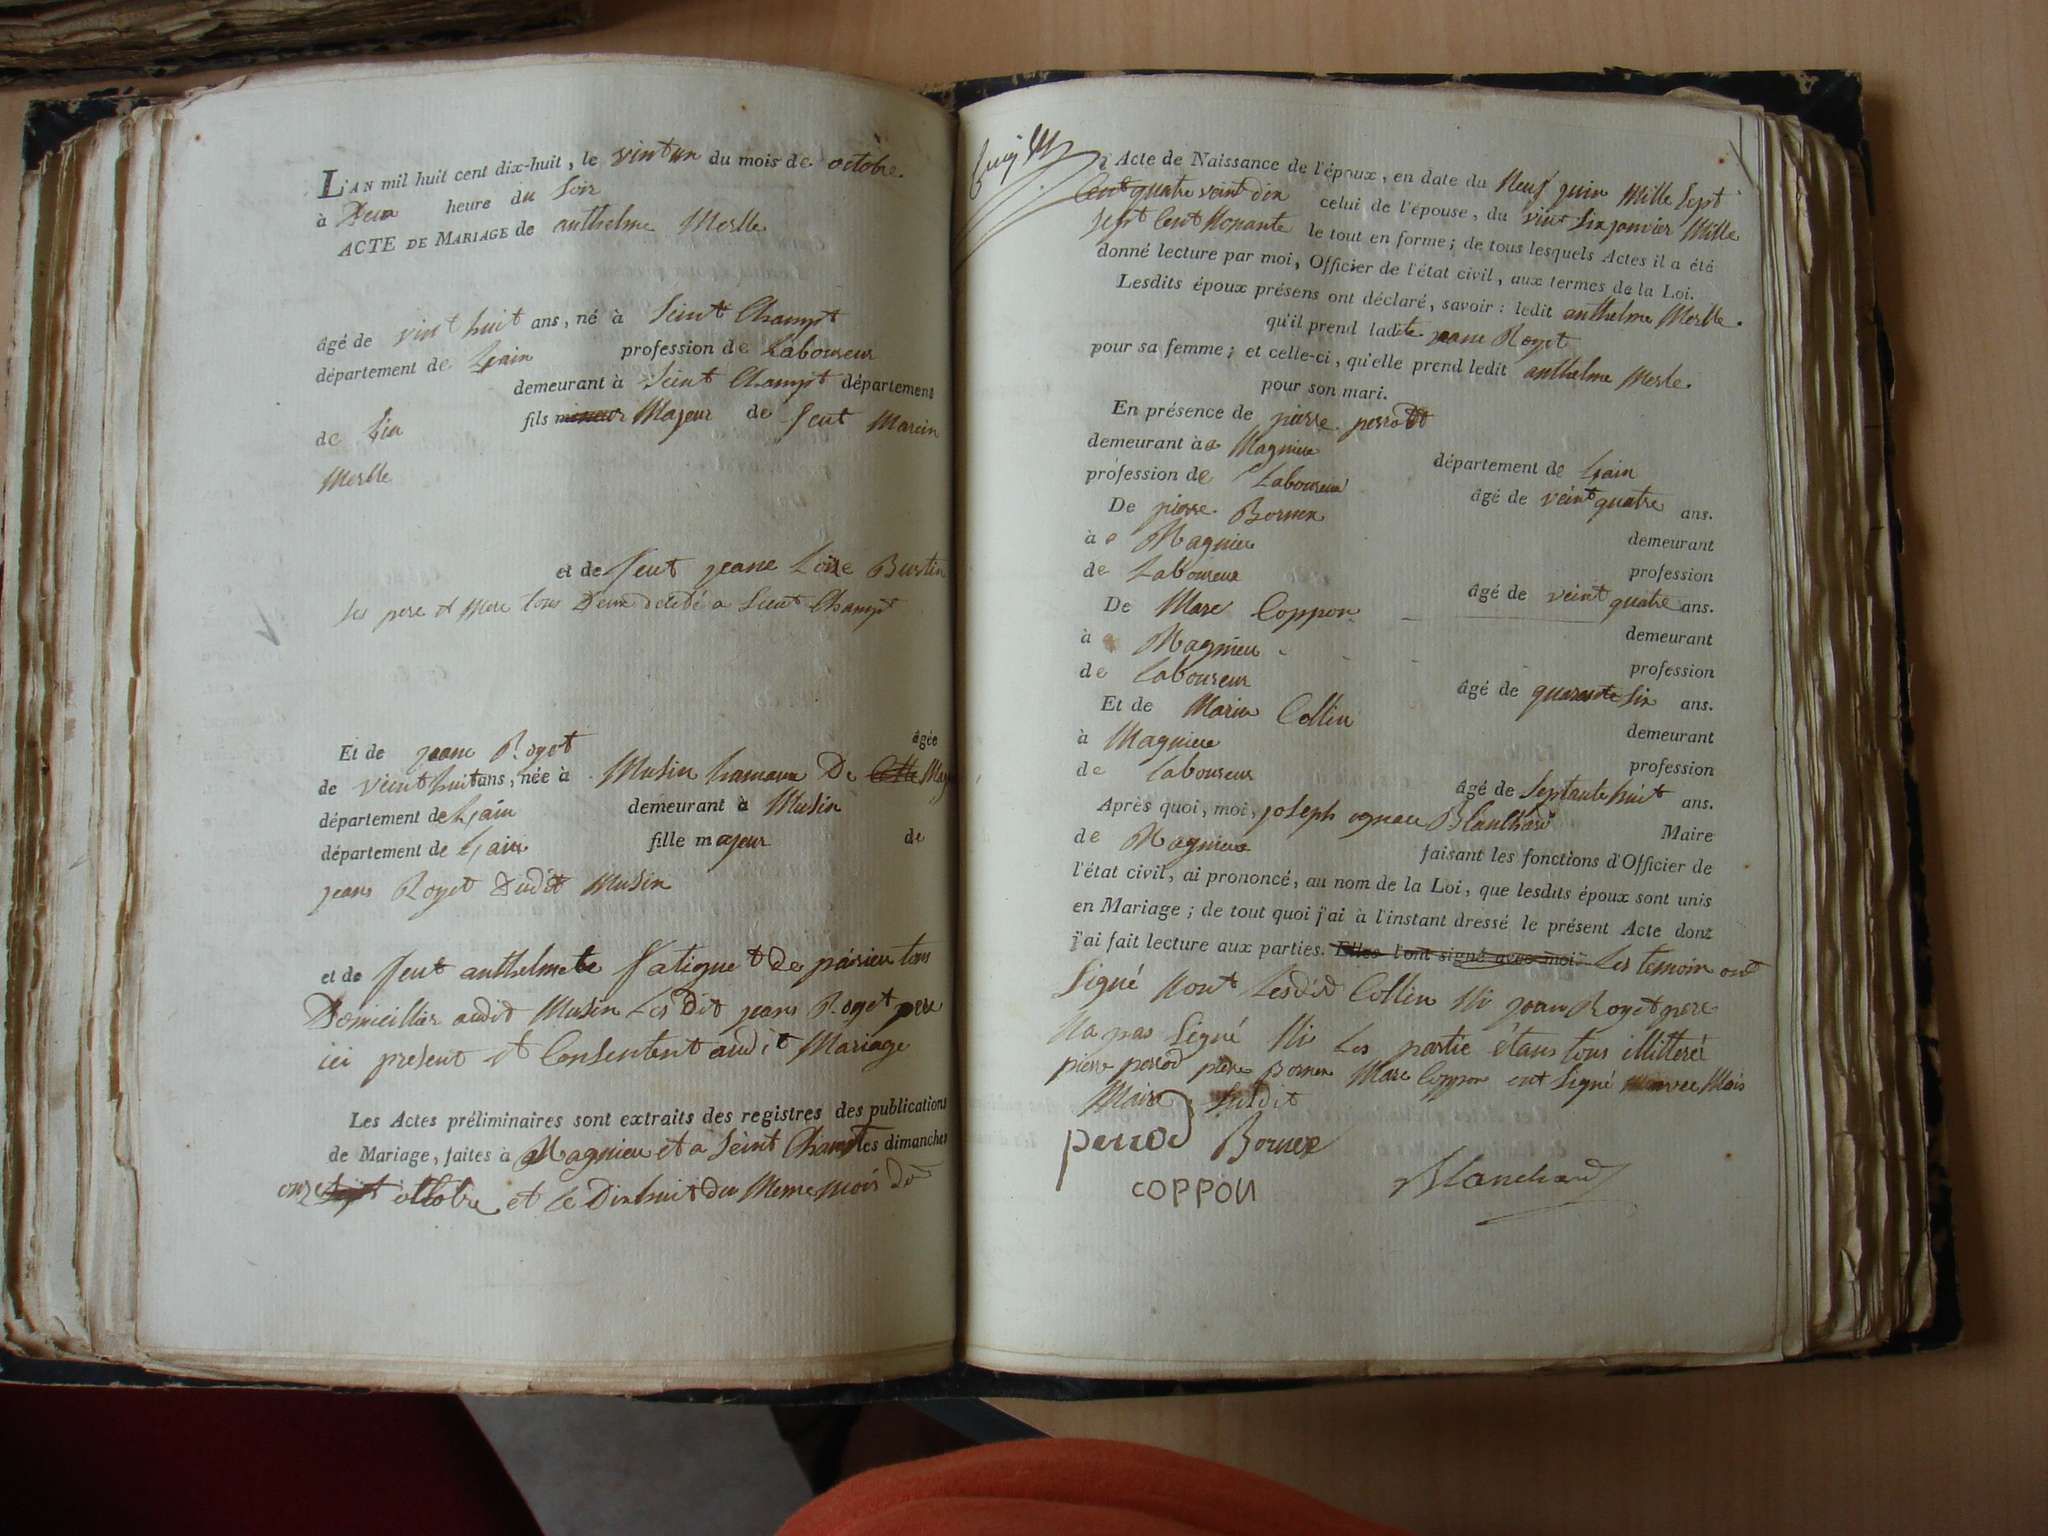 L'AN mil huit cent dix-huit, le vint un du mois de octobre.
à Deux heure du soir
ACTE DE MARIAGE de anthelme Merlle
âgé de vint huit ans, né à Seint Champt
département de Lain profession de Laboureur
demeurant à Seint Champt département
de Lin fils mineur Majeur de feut Marin
Merlle
et de feut jeane Loise Burtin
ses pere et Mere tous Deux à Seint Champt
Et de jeane Royet âgée
de veint huit ans, née à Musin hamaux De Cette Mag
département de Lain demeurant à Musin
département de Lain fille majeur de
jean Royet dudit Musin
et de feut anthelmete fatigue t de parieu tous
Domicillies audit Musin Les Dit jean Royet pere
ici present et Consentent audit Mariage
Les Actes préliminaires sont extraits des registres des publications
de Mariage, faites à Magnieu et a Seint Champt les dimanches
onze octobre et le Dixhuit du Meme mois
l'Acte de Naissance de l'époux, en date du Neuf juin Mille Sept
Cent quatre veint dix celui de l'épouse, du vint six janvier Mille
sept Cent Nonante le tout en forme; de tous lesquels Actes il a été
donné lecture par moi, Officier de l'état civil, aux termes de la Loi.
Lesdits époux présens ont déclaré, savoir: ledit anthelme Merlle.
qu'il prend ladite jeane Royet
pour sa femme; et celle-ci, qu'elle prend ledit anthelme Merle.
pour son mari.
En présence de pierre perrod
demeurant à Magnieu département de Lain
profession de Laboureur âgé de veint quatre ans.
De pierre Bornex demeurant
à Magnieu profession
de Laboureur âgé de veint quatre ans.
De Marc Coppon demeurant
à Magnieu profession
de Laboureur âgé de quarante six ans.
Et de Marin Collin demeurant
à Magnieu profession
de Laboureur âgé de Septante huit ans.
Après quoi, moi, joseph ognace Blanchard Maire
de Magnieu faisant les fonctions d'Officier de
l'état civil, ai prononcé, au nom de la Loi, que lesdits époux sont unis
en Mariage; de tout quoi j'ai à l'instant dressé le présent Acte dont
j'ai fait lecture aux parties. Elles l'ont signé avec moi. Les temoin ont
Signé Nont Lesdit Collin Ni jean Royet pere
Na pas Signé Ni Les partie étans tous illitteré
pierre perrod pierre Bornex Marc Coppon ont Signé avec Mois
Maire Susdit
perrod Bornex
COPPON Blanchard